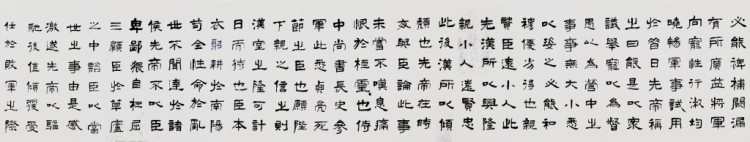 必能裨補闕漏
有所廣益將軍
向寵性行淑均
曉暢軍事試用
於昔日先帝稱
之曰能是以眾
議舉寵為督
愚以為營中之
事無大小悉
以咨之必能和
優得也親
賢臣遠小人此
先漢所以興隆
親小人遠賢忠
此後漢所以傾
頹也先帝在時
與臣論此事
未嘗不嘆息痛
恨於桓靈也侍
中尚書長史參
軍此悉貞亮死
節之臣也願陛
下親之信之則
漢室之隆可計
日而待也臣本
衣躬耕於南陽
苟全性命於亂
世不聞達於諸
侯先帝不以臣
卑鄙猥自枉屈
三顧臣於草廬
之中諮臣以當
世之事由是感
激遂先帝以驅
馳後值傾覆受
任於敗軍之際